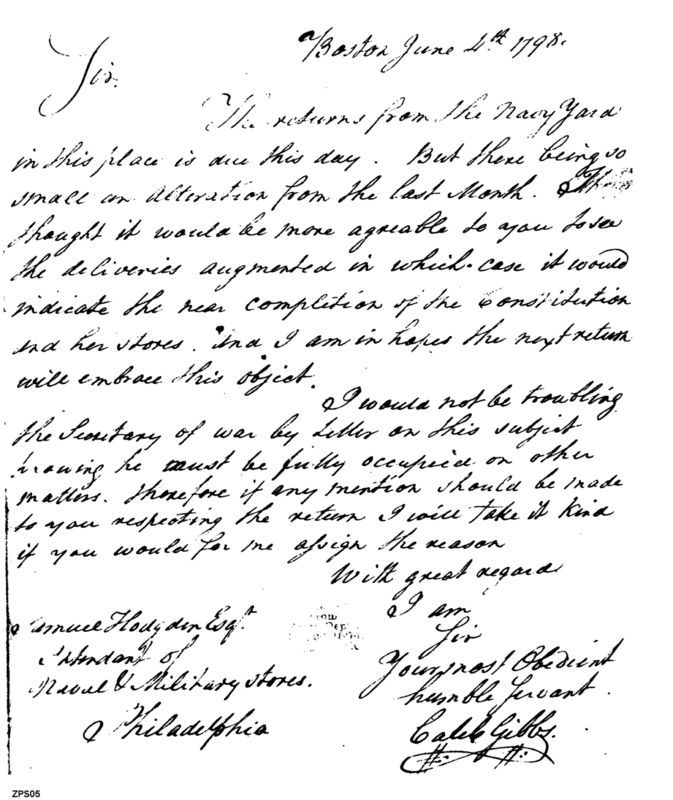 Boston June 4th 1798.
Sir.
The returns from the Navy Yard
in this place is due this day. But there being so
small an Alteration from the last Month.
thought it would be more agreable to you to see
the deliveries augmented in which case it would
indicate the near completion of the Constitution
and her stores. And I am in hopes the next return
will embrace this object.
I would not be troubling
the Secretary of war by Letter on this subject
knowing he must be fully occupied on other
matters. therefore if any mention should be made
to you respecting the return I will take it kind
if you would for me assign the reason
With great regard
I am
Sir
Your most Obedient
humble Servant.
Caleb Gibbs.
Samuel Hodgdon Esqr.
Intendant of
Naval & Military stores.
Philadelphia
ZPS05